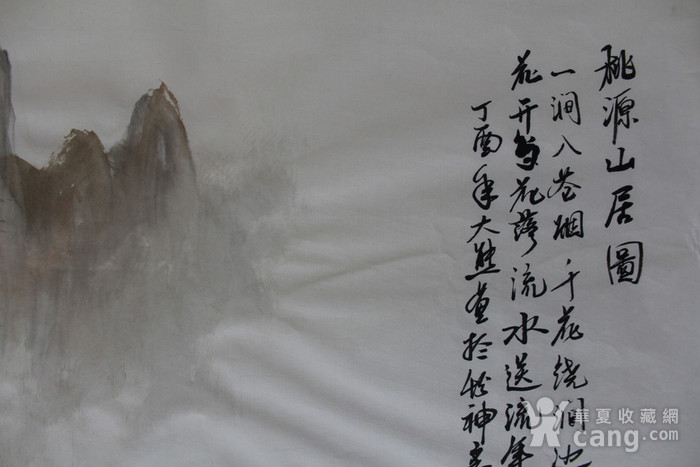 桃源山居圖
一涧入苍烟千花绕涧
花开与花落流水送流年
丁酉年大熊画於
華夏收藏網
cang.com